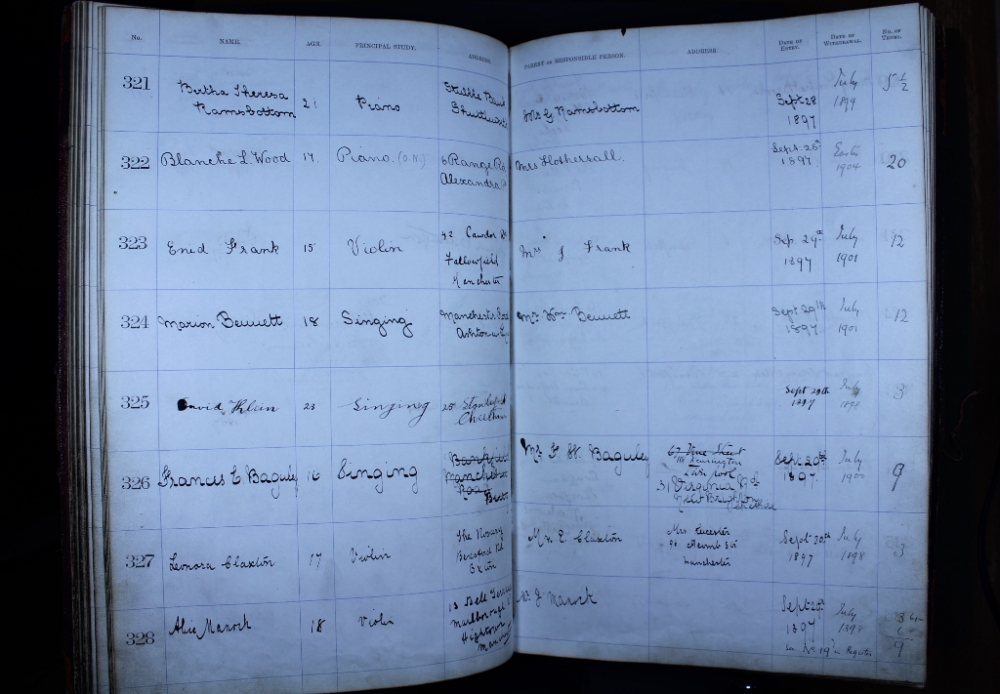 No. NAME. AGE. PRINCIPAL STUDY. ADDRESS. PARENT OR RESPONSIBLE PERSON. ADDRESS. DATE OF ENTRY. DATE OF WITHDRAWAL. No. OF TERMS.
321 Bertha Theresa Ramsbottom 21 Piano Stubble Mr G Ramsbottom Sept 28 1897 July 1899 5 1/2
322 Blanche L. Wood 17. Piano. (O.N.) 6 Range Alexandra Mrs Hothersall. Sept. 28th 1897 1904 20
323 Enid Frank 15 Violin 42 Cawdor Rd Fallowfield Manchester Mrs J Frank Sep. 29th 1897 July 1901 12
324 Marion Bennett 18 Singing Manchester Ashton Mr Wm Bennett Sept 29th 1897 July 1901 12
325 David Klein 23 Singing 25 Cheetham Sept 29th 1897 July 1898 3
326 Frances E Baguley 16 Singing Manchester Road Mr F. W. Baguley 67 Street Liverpool 31 Virginia Rd New Brighton Cheshire 1897. July 1900 9
327 Leonora Claxton 17 Violin The Beresford Rd Mr. E. Claxton Mrs Leicester Manchester Sept 30th 1897 July 1898 3
328 Alice Marock 18 Violin 13 Bell Terrace Marlborough Hightown Mr J Marock Sept 29th 1897 July 1898 3 6 9
See No 19 in Register.